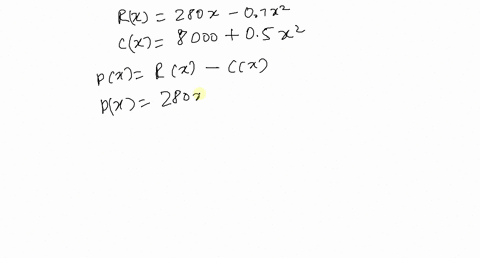 R(x) = 280x - 0.7x²
C(x) = 8000 + 0.5x²
p(x) = R(x) - C(x)
p(x) = 280x